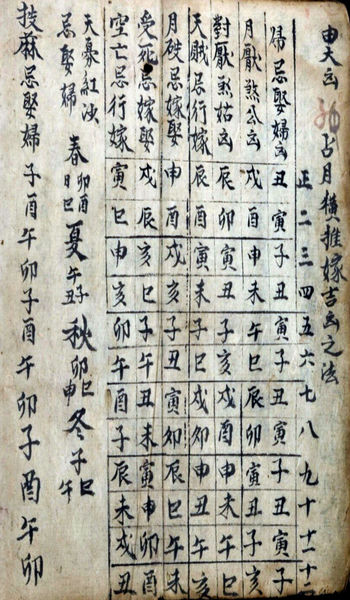 占月橫推嫁吉凶之法
正二三四五六七八九十十一十二
歸忌娶婦凶丑寅子丑寅子丑寅子丑寅子
月厭煞公凶戌酉申未午巳辰卯寅丑子亥
對厭煞姑凶辰卯寅丑子亥戌酉申未午巳
天賊忌行嫁辰酉寅未子巳戌卯申丑午亥
月破忌嫁娶申酉戌亥子丑寅卯辰巳午未
受死忌嫁娶戌辰亥巳子午丑未寅申卯酉
空亡忌行嫁寅巳申亥卯午酉子辰未戌丑
天寡紅沙
忌娶婦 春卯酉日巳夏午子丑秋卯巳申冬子巳午
披麻忌娶婦子酉午卯子酉午卯子酉午卯